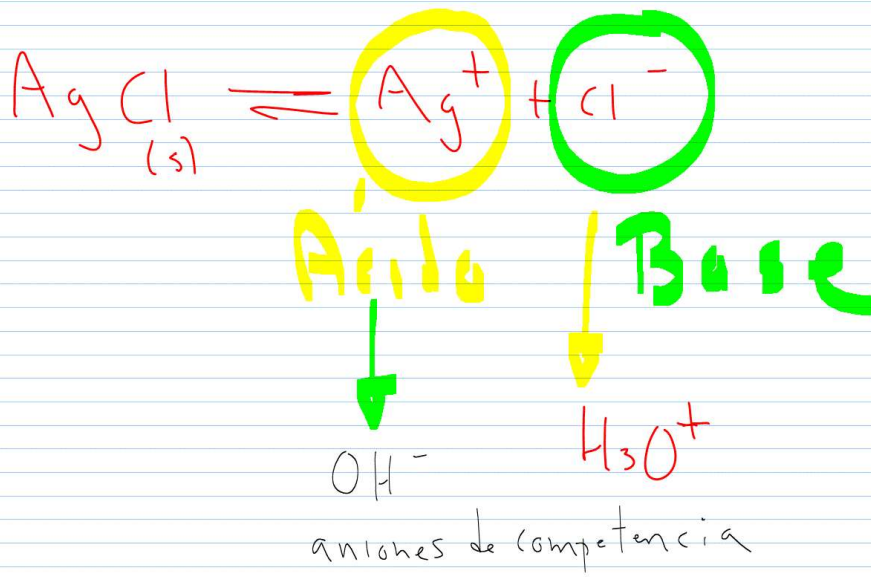 AgCl(s) ⇌ Ag⁺ + Cl⁻
Ácido Base
OH⁻ H₃O⁺
aniones de competencia